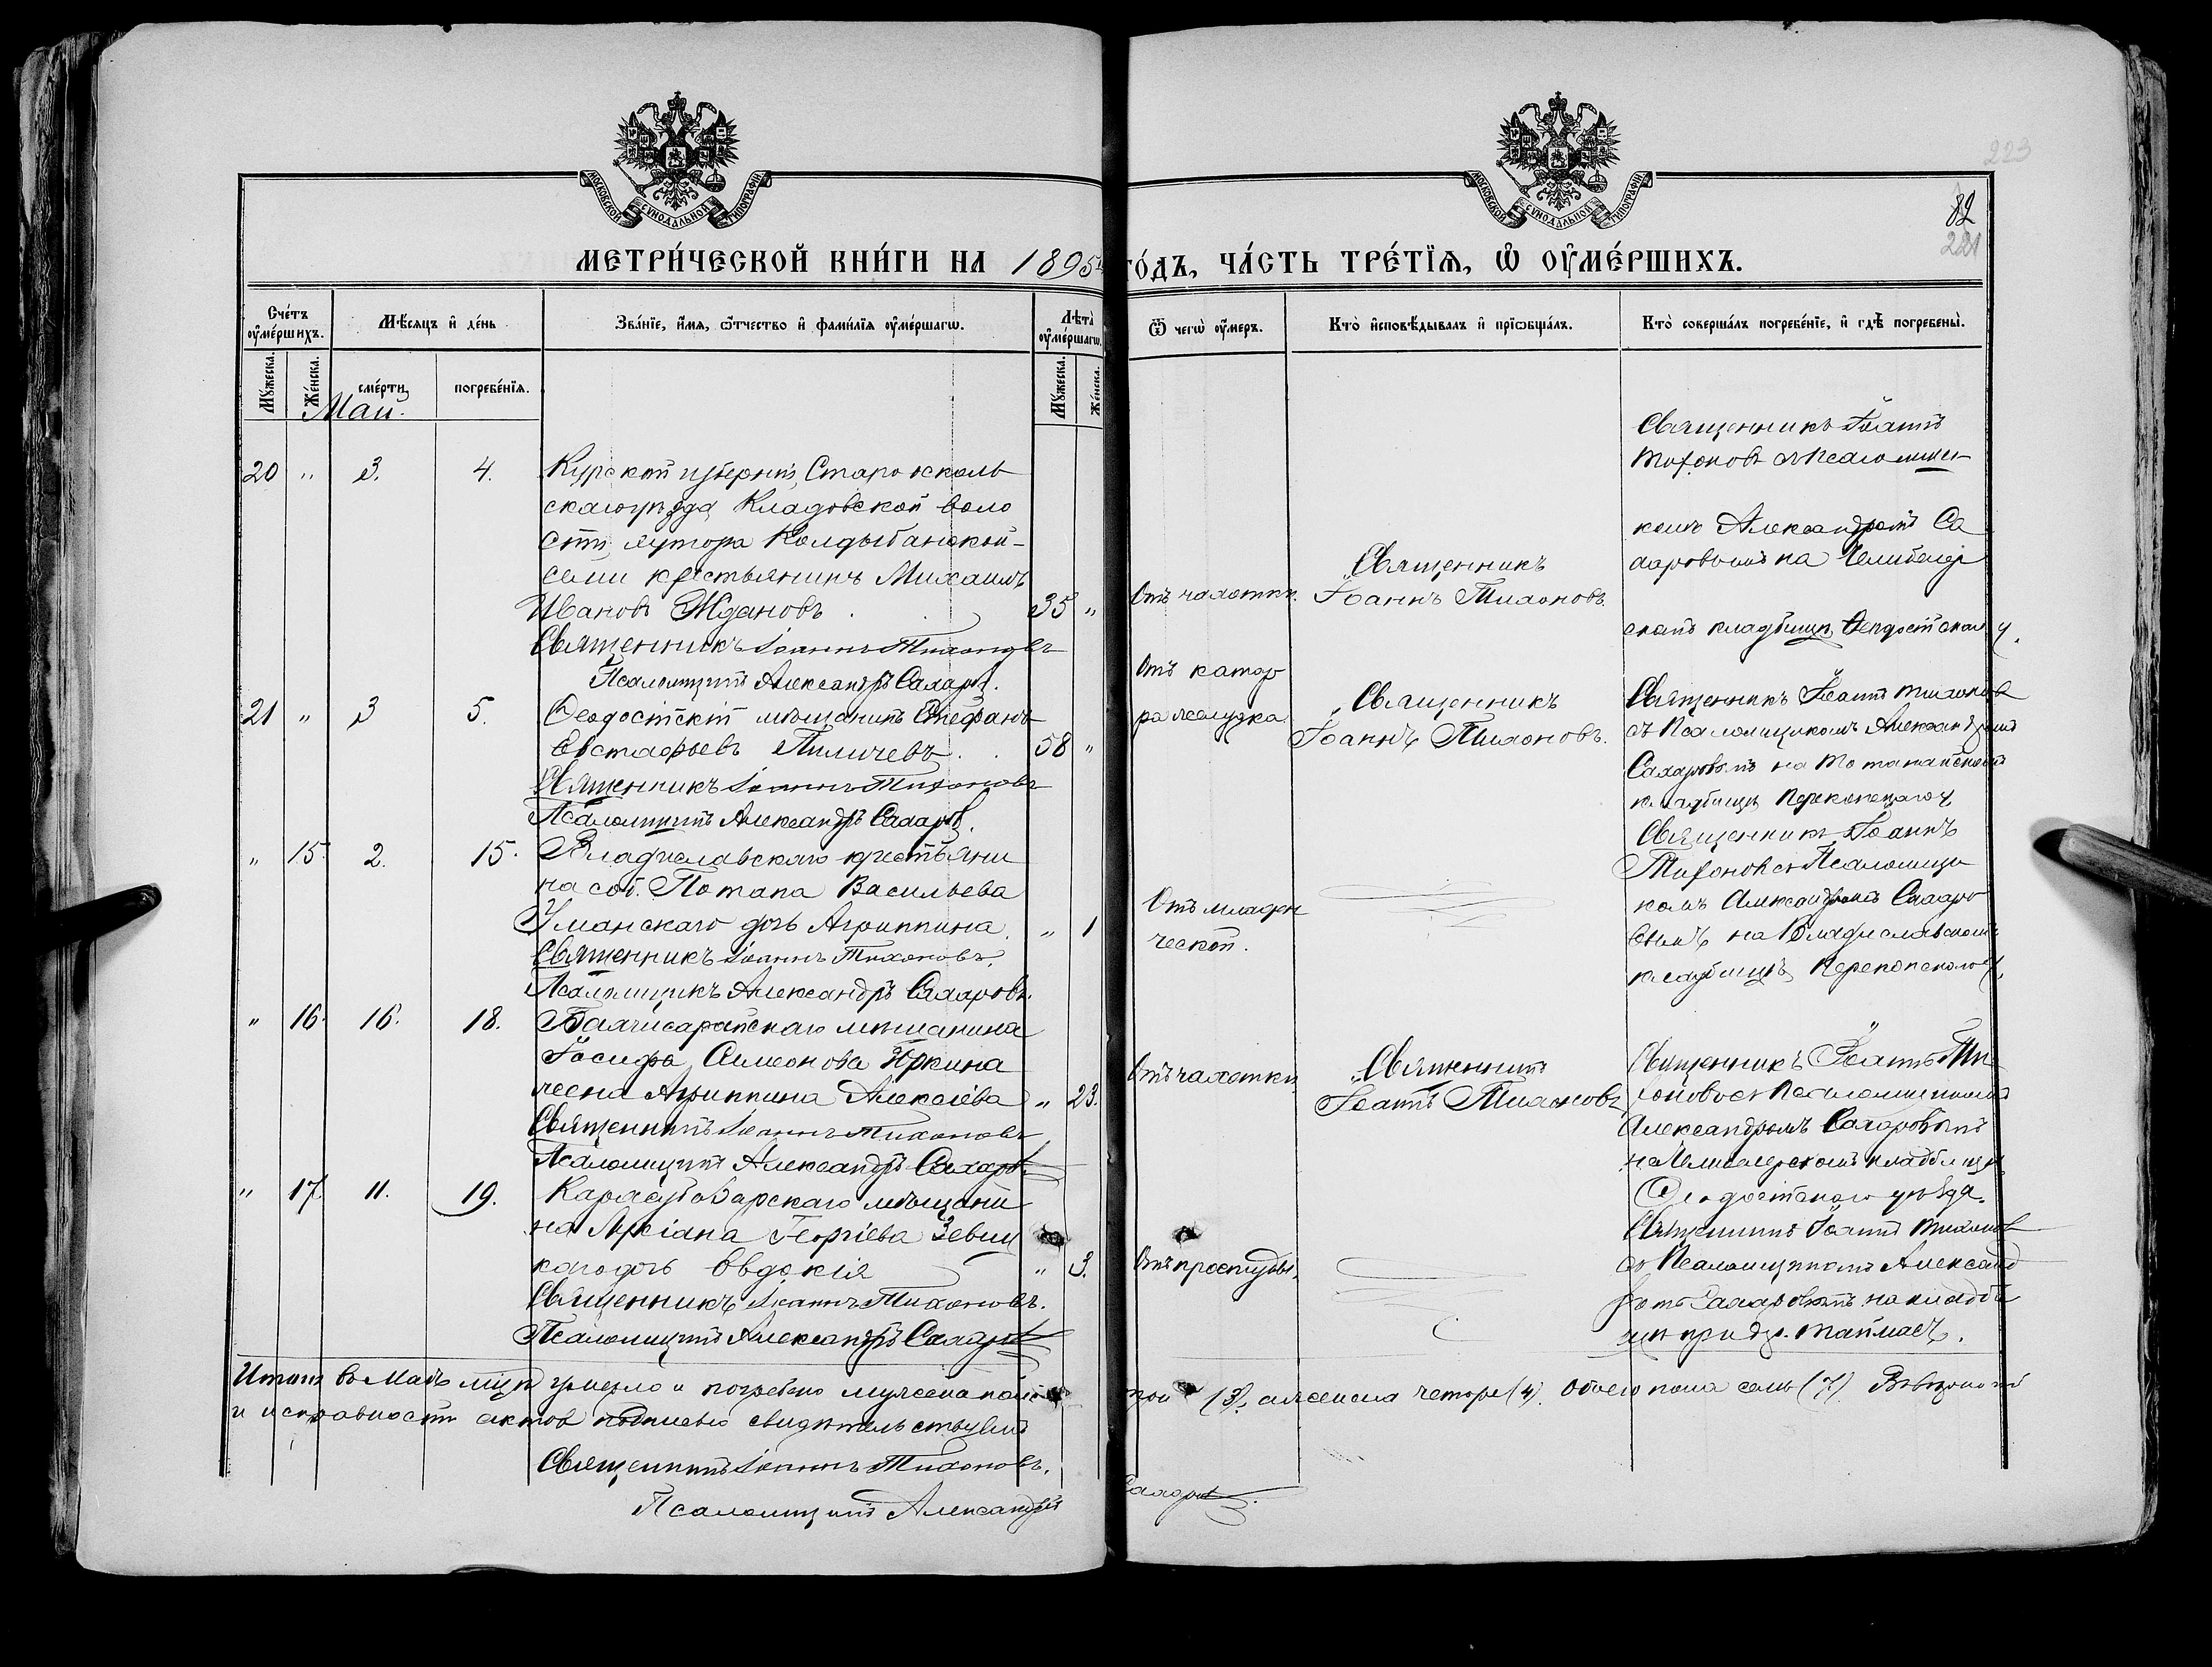 223
82
221
МОСКОВСКОЙ СУНОДАЛЬНОЙ ТИПОГРАФІИ
МОСКОВСКОЙ СУНОДАЛЬНОЙ ТИПОГРАФІИ
МЕТРИ́ЧЕСКОЙ КНИ́ГИ НА 1895
ГО́ДЪ, ЧА́СТЬ ТРЕ́ТІЯ, Ѡ ОУМЕ́РШИХЪ.
Сче́тъ оуме́ршихъ.
Мѣ́сяцъ и де́нь
Зва́нїе, и́мя, ѻ́тчество и фами́лїя оуме́ршагѡ.
Лѣ́та оуме́ршагѡ.
Ѿ чегѡ̀ оу́меръ.
Кто̀ исповѣ́дывалъ и прїѡбща́лъ.
Кто̀ соверша́лъ погребе́нїе, и гдѣ̀ погребены̀.
Му́жеска. Же́нска. сме́рти погребе́нїя. Му́жеска. Же́нска.
Май.
20 " 3. 4. Курской губерніи, Староосколь
скаго уѣзда Кладовской воло
сти хутора
крестьянинъ Михаилъ
Ивановъ Ждановъ 35 "
Священникъ Іоаннъ Тихоновъ
Псаломщикъ Александръ Сахаровъ.
Отъ чахотки.
Священникъ
Іоаннъ Тихоновъ.
Священникъ Іоаннъ
Тихоновъ съ Псаломщи
комъ Александромъ Са
харовымъ на
скомъ кладбищѣ Ѳеодосійскаго у.
21 " 3 5. Ѳеодосійскій мѣщанинъ Стефанъ
Евстафьевъ Пиличевъ 58 "
Священникъ Іоаннъ Тихоновъ
Псаломщикъ Александръ Сахаровъ.
Отъ катар
ра желудка
Священникъ
Іоаннъ Тихоновъ.
Священникъ Іоаннъ Тихоновъ
съ Псаломщикомъ Александромъ
Сахаровымъ на
кладбищѣ Перекопскаго у
" 15. 2. 15. Владиславскаго крестьяни
на соб. Потапа Васильева
Уманскаго дочь Агриппина. " 1
Священникъ Іоаннъ Тихоновъ.
Псаломщикъ Александръ Сахаровъ.
Отъ младен
ческой.
Священникъ Іоаннъ
Тихоновъ съ Псаломщи
комъ Александромъ Сахаро
вымъ на Владиславскомъ
кладбищѣ Перекопскаго у.
" 16. 16. 18. Бахчисарайскаго мѣщанина
Іосифа Симеонова
жена Агриппина Алексіева " 23.
Священникъ Іоаннъ Тихоновъ
Псаломщикъ Александръ Сахаровъ
Отъ чахотки
Священникъ
Іоаннъ Тихоновъ
Священникъ Іоаннъ Ти
хоновъ съ Псаломщикомъ
Александромъ Сахаровымъ
на кладбищѣ
Ѳеодосійскаго уѣзда.
" 17. 11. 19. Карасубазарскаго мѣщани
на Лукіана Георгіева
дочь Евдокія " 3.
Священникъ Іоаннъ Тихоновъ.
Псаломщикъ Александръ Сахаровъ
Отъ простуды.
Священникъ Іоаннъ Тихоновъ
съ Псаломщикомъ Александ
ромъ Сахаровымъ на кладби
щѣ при дер.
Итого въ Маѣ мцѣ умерло и погребено мужеска пола
трои (3), а женска четыре (4). Обоего пола семь (7).
и исправности актовъ подписью свидѣтельствуемъ
Священникъ Іоаннъ Тихоновъ.
Псаломщикъ Александръ
Сахаровъ.